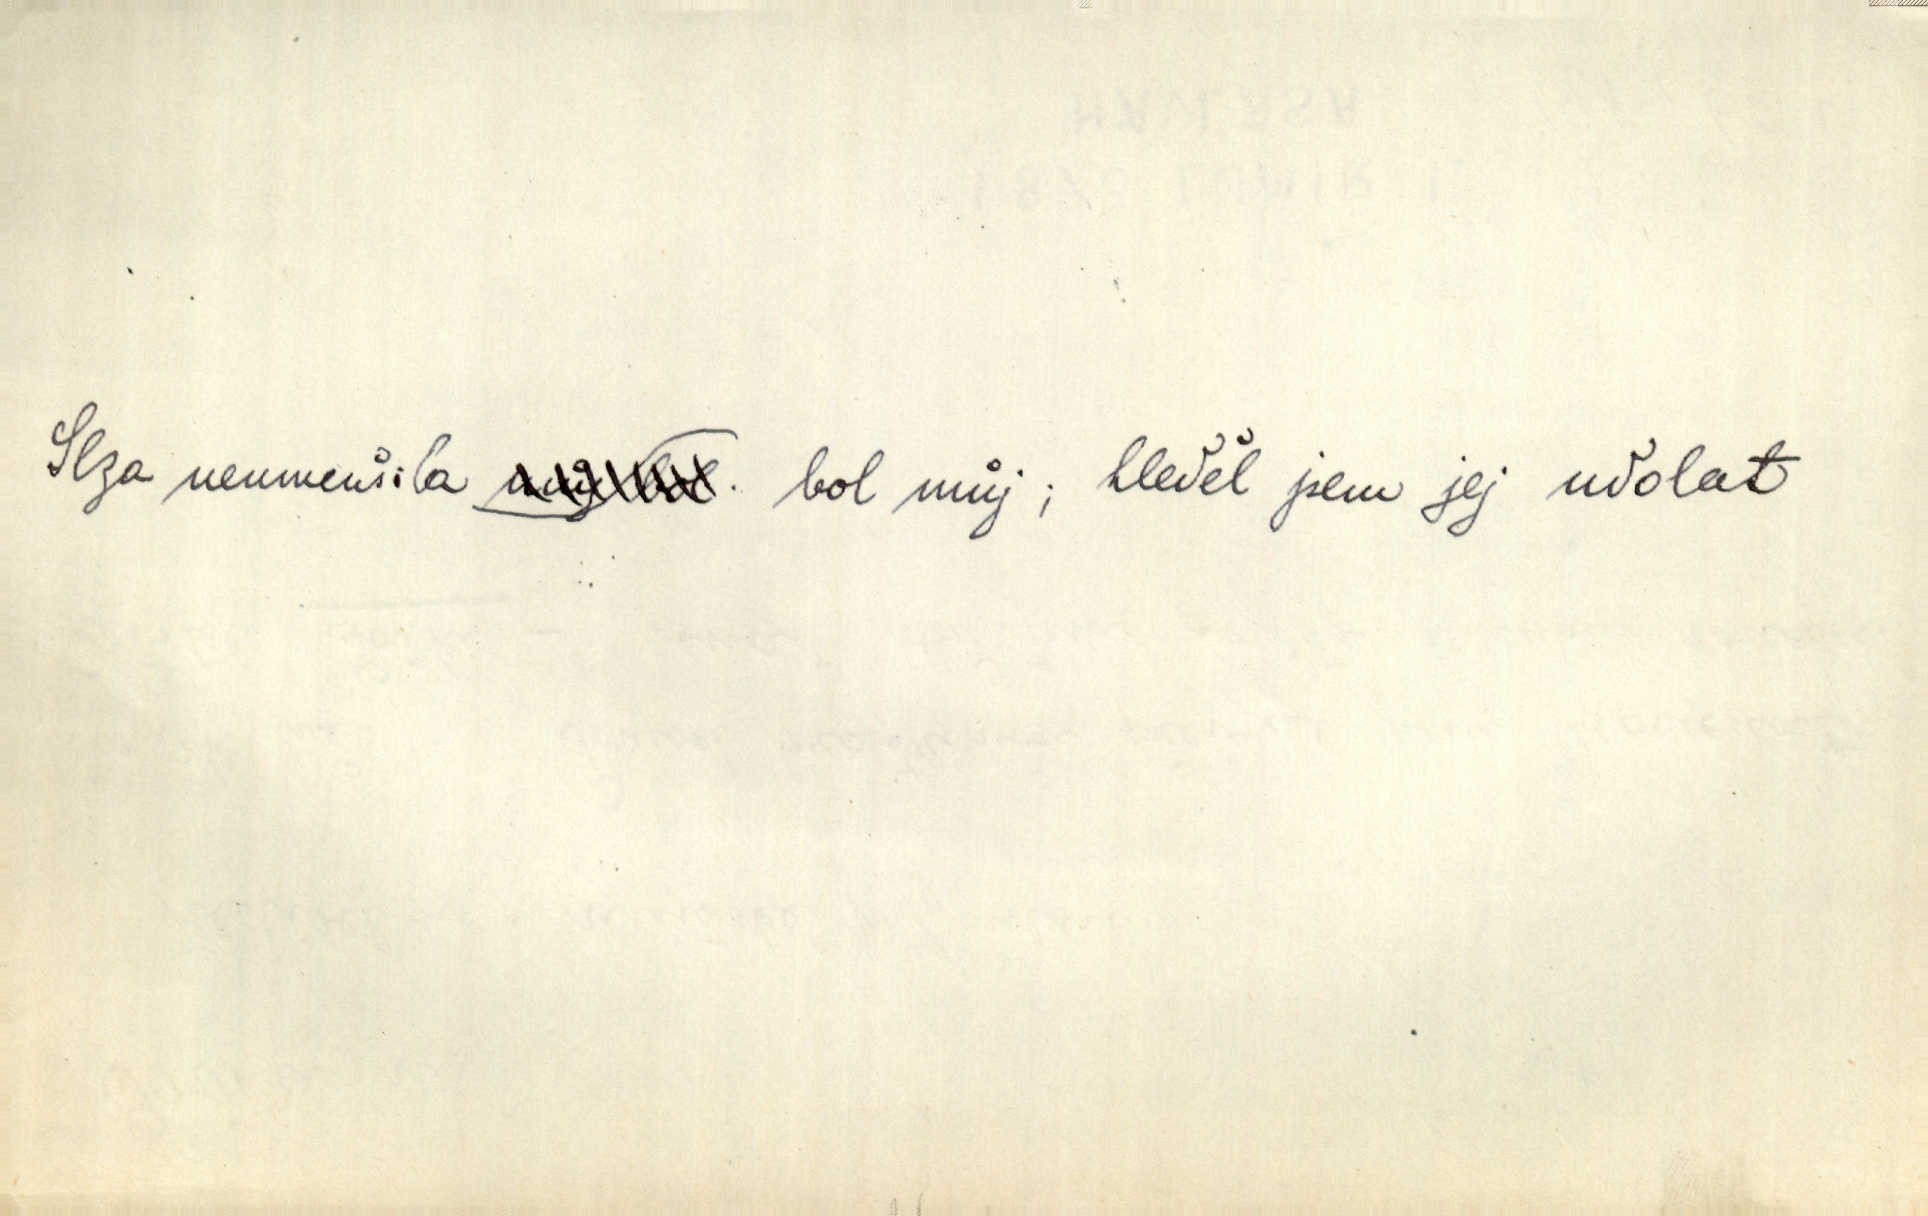 Slza neumenšila můj bol. bol můj; hleděl jsem jej udolat